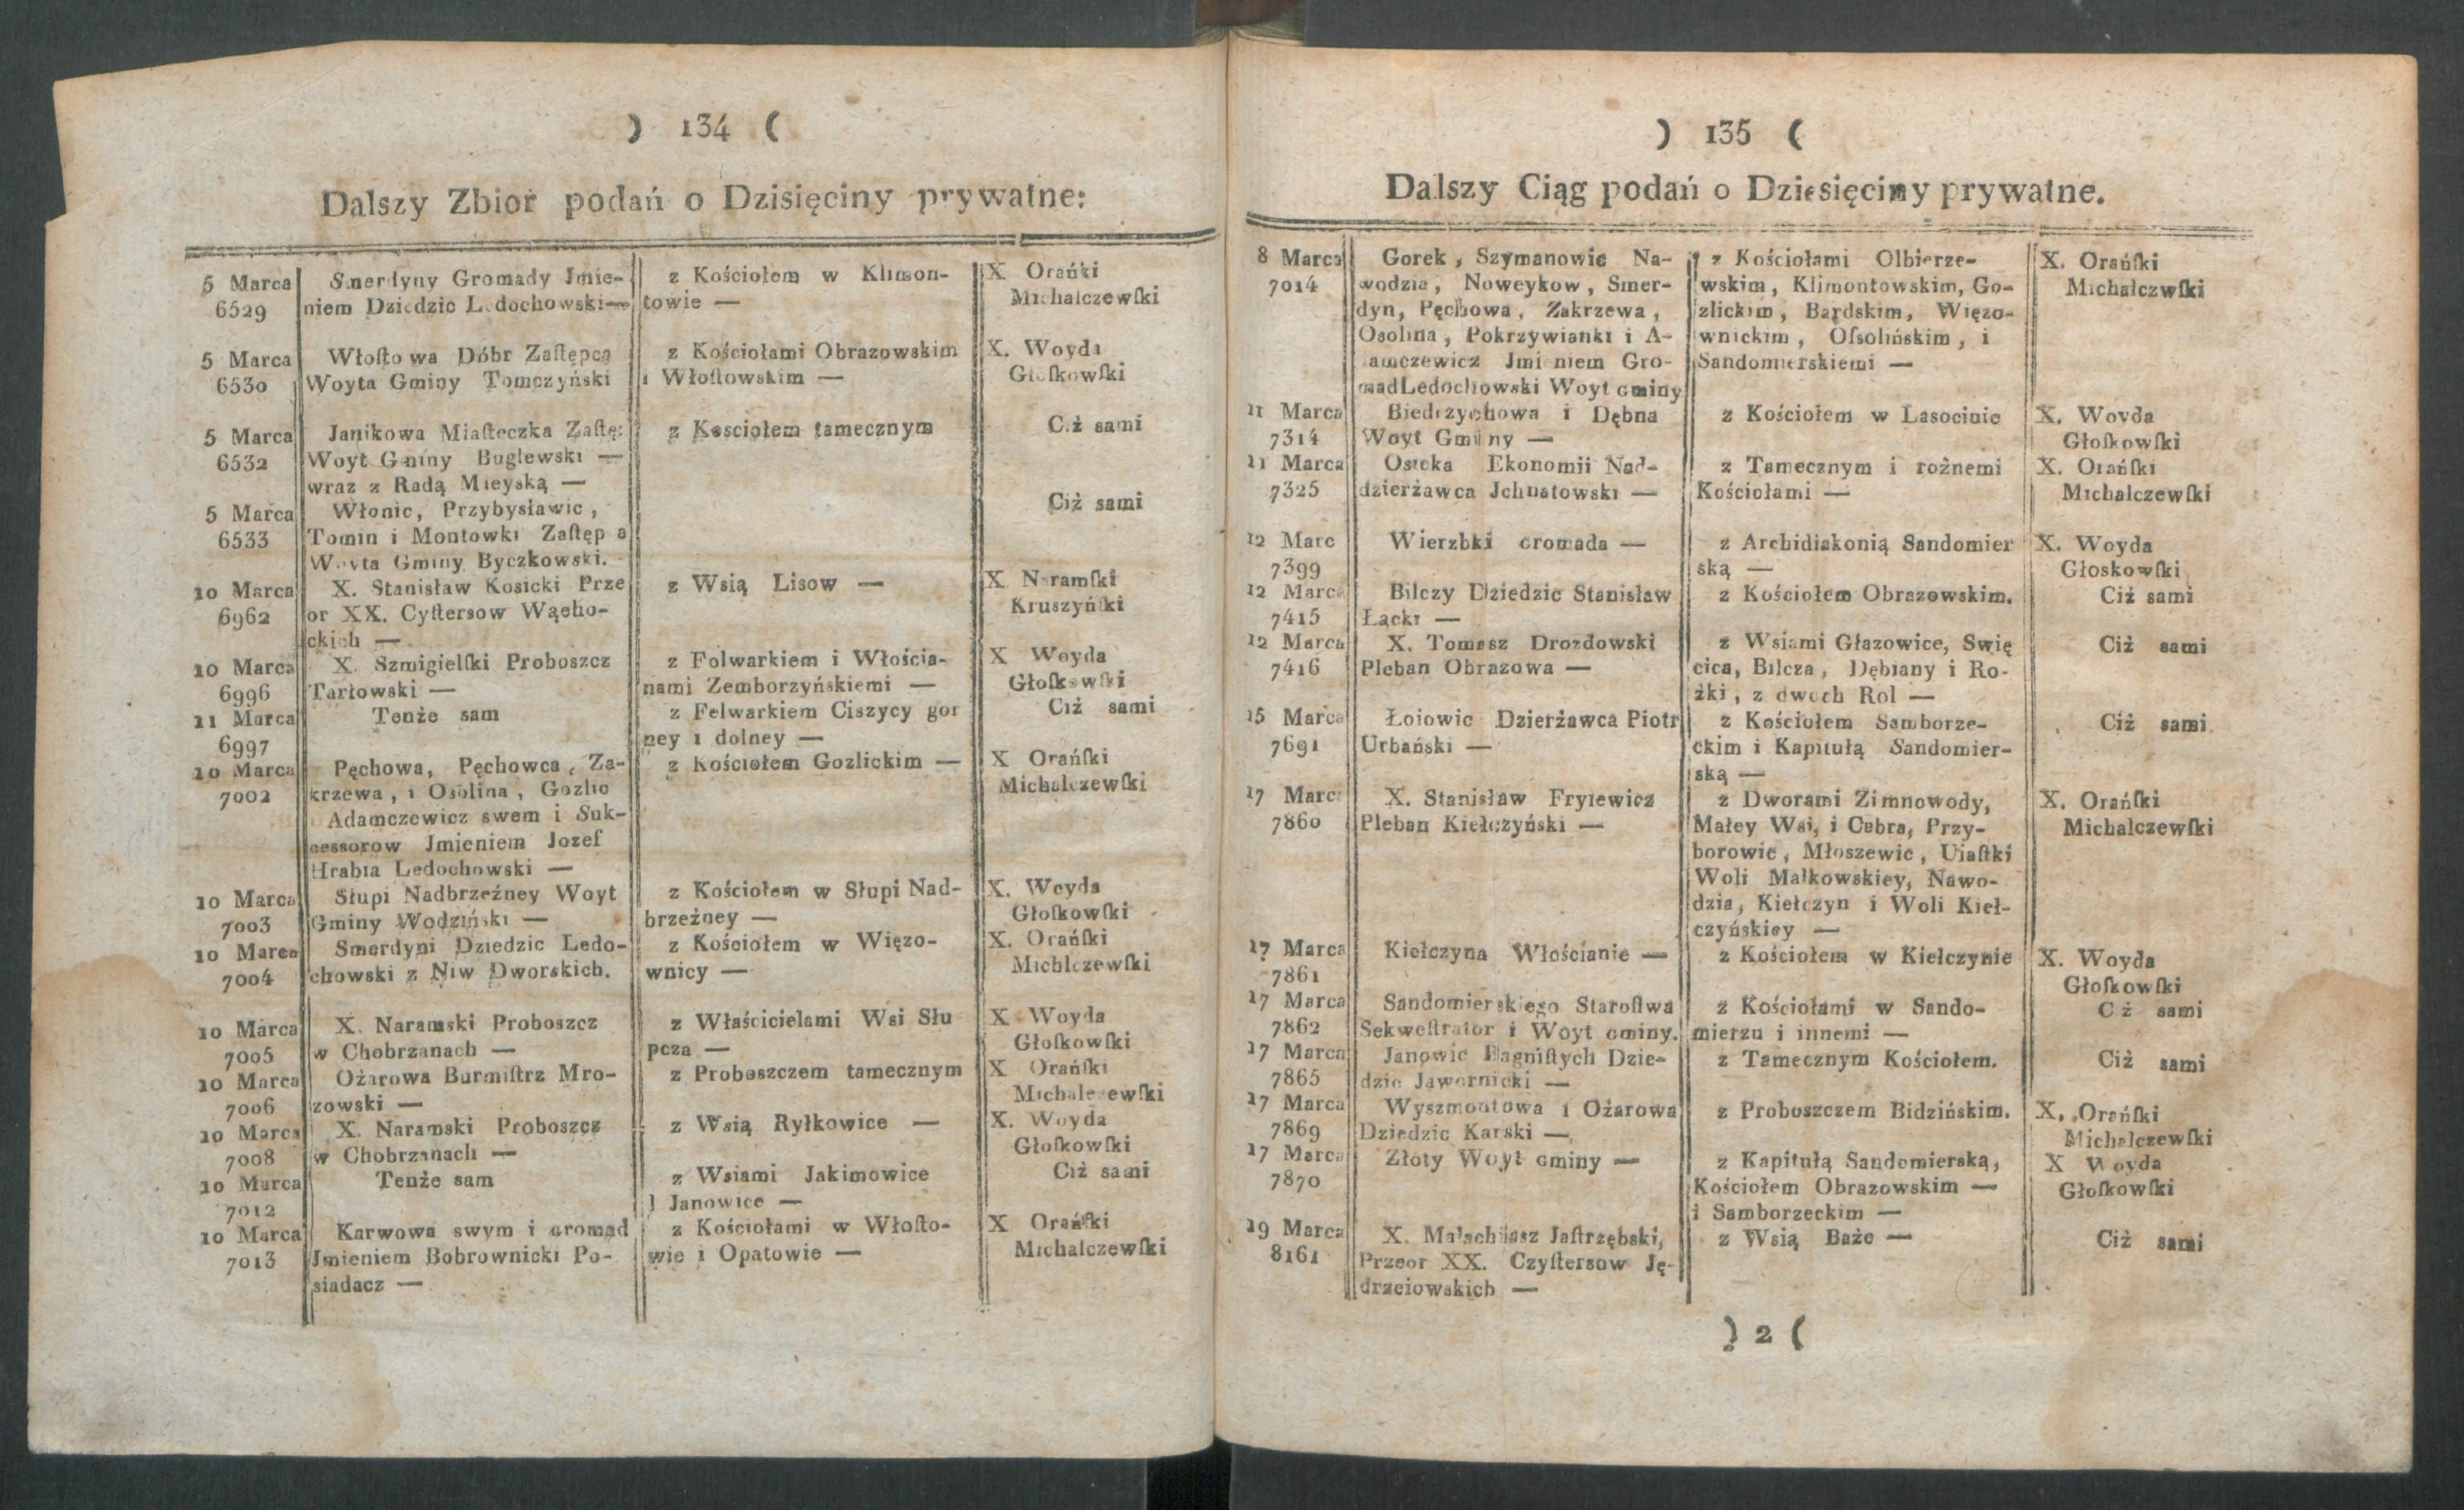 ) 134 (
Dalszy Zbior podań o Dzisięciny prywatne:
5 Marca
6529
Smerdyny Gromady Jmie-
niem Dziedzic Ledochowski—
z Kościołem w Klimon-
towie —
X Orański
Michalczewſki
5 Marca
6530
Włoſtowa Dóbr Zaſtępca
Woyta Gminy Tomczyński
z Kościołami Obrazowskim
i Włoſtowskim —
X. Woyda
Głoſkowſki
5 Marca
6532
Janikowa Miaſteczka Zaſtę:
Woyt Gminy Buglewski —
wraz z Radą Mieyską —
z Kosciołem tamecznym
Ciż sami
5 Marca
6533
Włonic, Przybysławic,
Tomin i Montowki Zaſtęp a
Woyta Gminy Byczkowski.
Ciż sami
10 Marca
6962
X. Stanisław Kosicki Prze
or XX. Cyſtersow Wąeho-
ckich —
z Wsią Lisow —
X Naramſki
Kruszyńſki
10 Marca
6996
X. Szmigielſki Proboszcz
Tarłowski —
z Folwarkiem i Włościa-
nami Zemborzyńskiemi —
X Woyda
Głoſkowſki
11 Marca
6997
Tenże sam
z Felwarkiem Ciszycy gor
ney i dolney —
Ciż sami
10 Marca
7002
Pęchowa, Pęchowca, Za-
krzewa, i Osolina, Gozlic
Adamczewicz swem i Suk-
cessorow Jmieniem Jozef
Hrabia Ledochowski —
z Kościołem Gozlickim —
X Orańſki
Michalczewſki
10 Marca
7003
Słupi Nadbrzeźney Woyt
Gminy Wodziński —
z Kościołem w Słupi Nad-
brzeżney —
X. Woyda
Głoſkowſki
10 Marca
7004
Smerdyni Dziedzic Ledo-
chowski z Niw Dworskich.
z Kościołem w Więzo-
wnicy —
X. Orańſki
Michlczewſki
10 Marca
7005
X. Naramski Proboszcz
w Chobrzanach —
z Właścicielami Wsi Słu
pcza —
X Woyda
Głoſkowſki
10 Marca
7006
Ożarowa Burmiſtrz Mro-
zowski —
z Proboszczem tamecznym
X Orańſki
Michalczewſki
10 Marca
7008
X. Naramski Proboszcz
w Chobrzanach —
z Wsią Ryłkowice —
X. Woyda
Głoſkowſki
10 Marca
7012
Tenże sam
z Wsiami Jakimowice
i Janowice —
Ciż sami
10 Marca
7013
Karwowa swym i Gromad
Jmieniem Bobrownicki Po-
siadacz —
z Kościołami w Włoſto-
wie i Opatowie —
X Orańſki
Michalczewſki
) 135 (
Dalszy Ciąg podań o Dziesięciny prywatne.
8 Marca
7014
Gorek, Szymanowic Na-
wodzia, Noweykow, Smer-
dyn, Pęchowa, Zakrzewa,
Osolina, Pokrzywianki i A-
amczewicz Jmi niem Gro-
mad Ledochowski Woyt Gminy
z Kościołami Olbierze-
wskim, Klimontowskim, Go-
zlickim, Bardskim, Więzo-
wnickim, Oſsolińskim, i
Sandomierskiemi —
X. Orańſki
Michalczwſki
11 Marca
7314
Biedrzychowa i Dębna
Woyt Gminy —
z Kościołem w Lasocinie
X. Woyda
Głoſkowſki
11 Marca
7325
Osieka Ekonomii Nad-
dzierżawca Jchnatowski —
z Tamecznym i rożnemi
Kościołami —
X. Orańſki
Michalczewſki
12 Marc
7399
Wierzbki Gromada —
z Archidiakonią Sandomier
ską —
X. Woyda
Głoskowſki
12 Marca
7415
Bilczy Dziedzic Stanisław
Łącki —
z Kościołem Obrazowskim.
Ciż sami
12 Marca
7416
X. Tomasz Drozdowski
Pleban Obrazowa —
z Wsiami Głazowice, Swię
cica, Bilcza, Dębiany i Ro-
żki, z dwoch Rol —
Ciż sami
15 Marca
7691
Łoiowic Dzierżawca Piotr
Urbański —
z Kościołem Samborze-
ckim i Kapitułą Sandomier-
ską —
Ciż sami
17 Marca
7860
X. Stanisław Fryiewicz
Pleban Kiełczyński —
z Dworami Zimnowody,
Małey Wsi, i Cebra, Przy-
borowic, Młoszewic, Uiaſtki
Woli Malkowskiey, Nawo-
dzia, Kiełczyn i Woli Kieł-
czyńskiey —
X. Orańſki
Michalczewſki
17 Marca
7861
Kiełczyna Włościanie —
z Kościołem w Kiełczynie
X. Woyda
Głoſkowſki
17 Marca
7862
Sandomierskiego Staroſtwa
Sekweſtrator i Woyt Gminy.
z Kościołami w Sando-
mierzu i innemi —
C ż sami
17 Marca
7865
Janowic Bagniſtych Dzie-
dzic Jawornicki —
z Tamecznym Kościołem.
Ciż sami
17 Marca
7869
Wyszmontowa i Ożarowa
Dziedzic Karski —
z Proboszczem Bidzińskim.
X. Orańſki
Michalczewſki
17 Marca
7870
Złoty Woyt Gminy —
z Kapitułą Sandomierską,
Kościołem Obrazowskim —
i Samborzeckim —
X Woyda
Głoſkowſki
19 Marca
8161
X. Malachiasz Jaſtrzębski,
Przeor XX. Czyſtersow Ję-
drzeiowskich —
z Wsią Baże —
Ciż sami
) 2 (